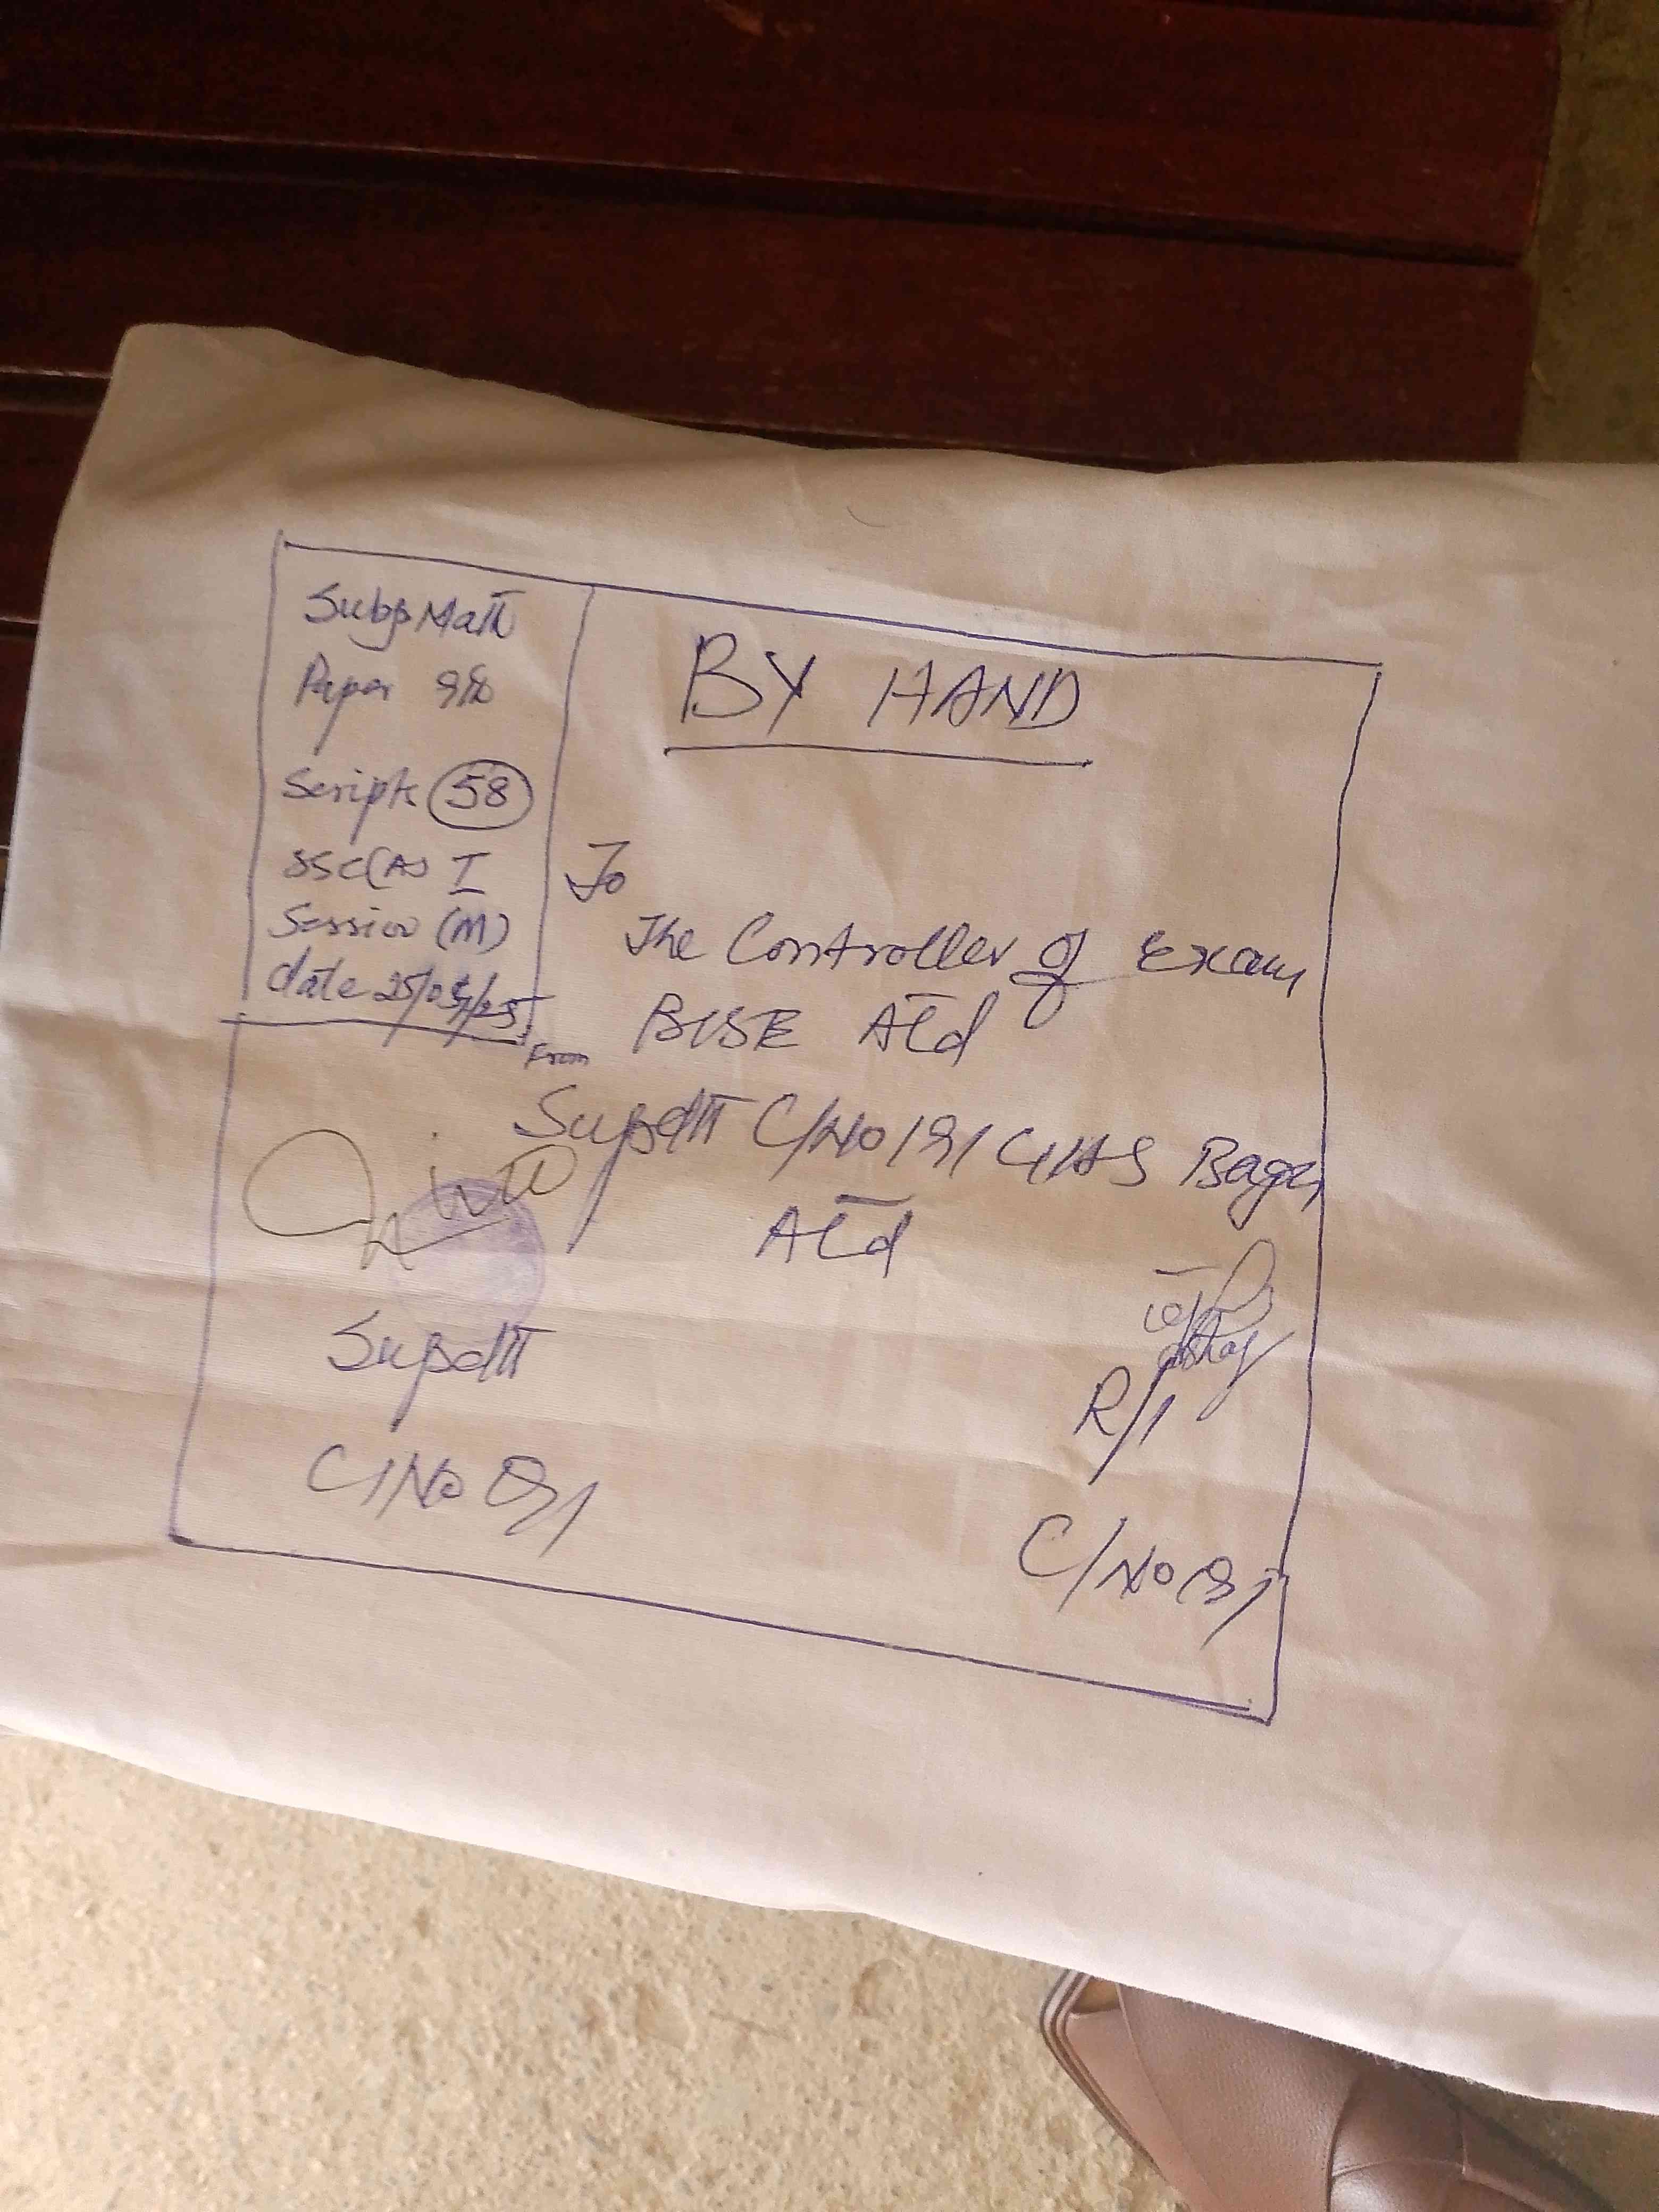 Subj Math
Paper
Scripts 58
SSC(A) I
Session (M)
date 25/0
BY HAND
To
The Controller of Exam
BISE ATd
From
Supdtt C/No 191 GHS Bagan
ATd
Supdtt
C/No 191
R/I
C/No 191